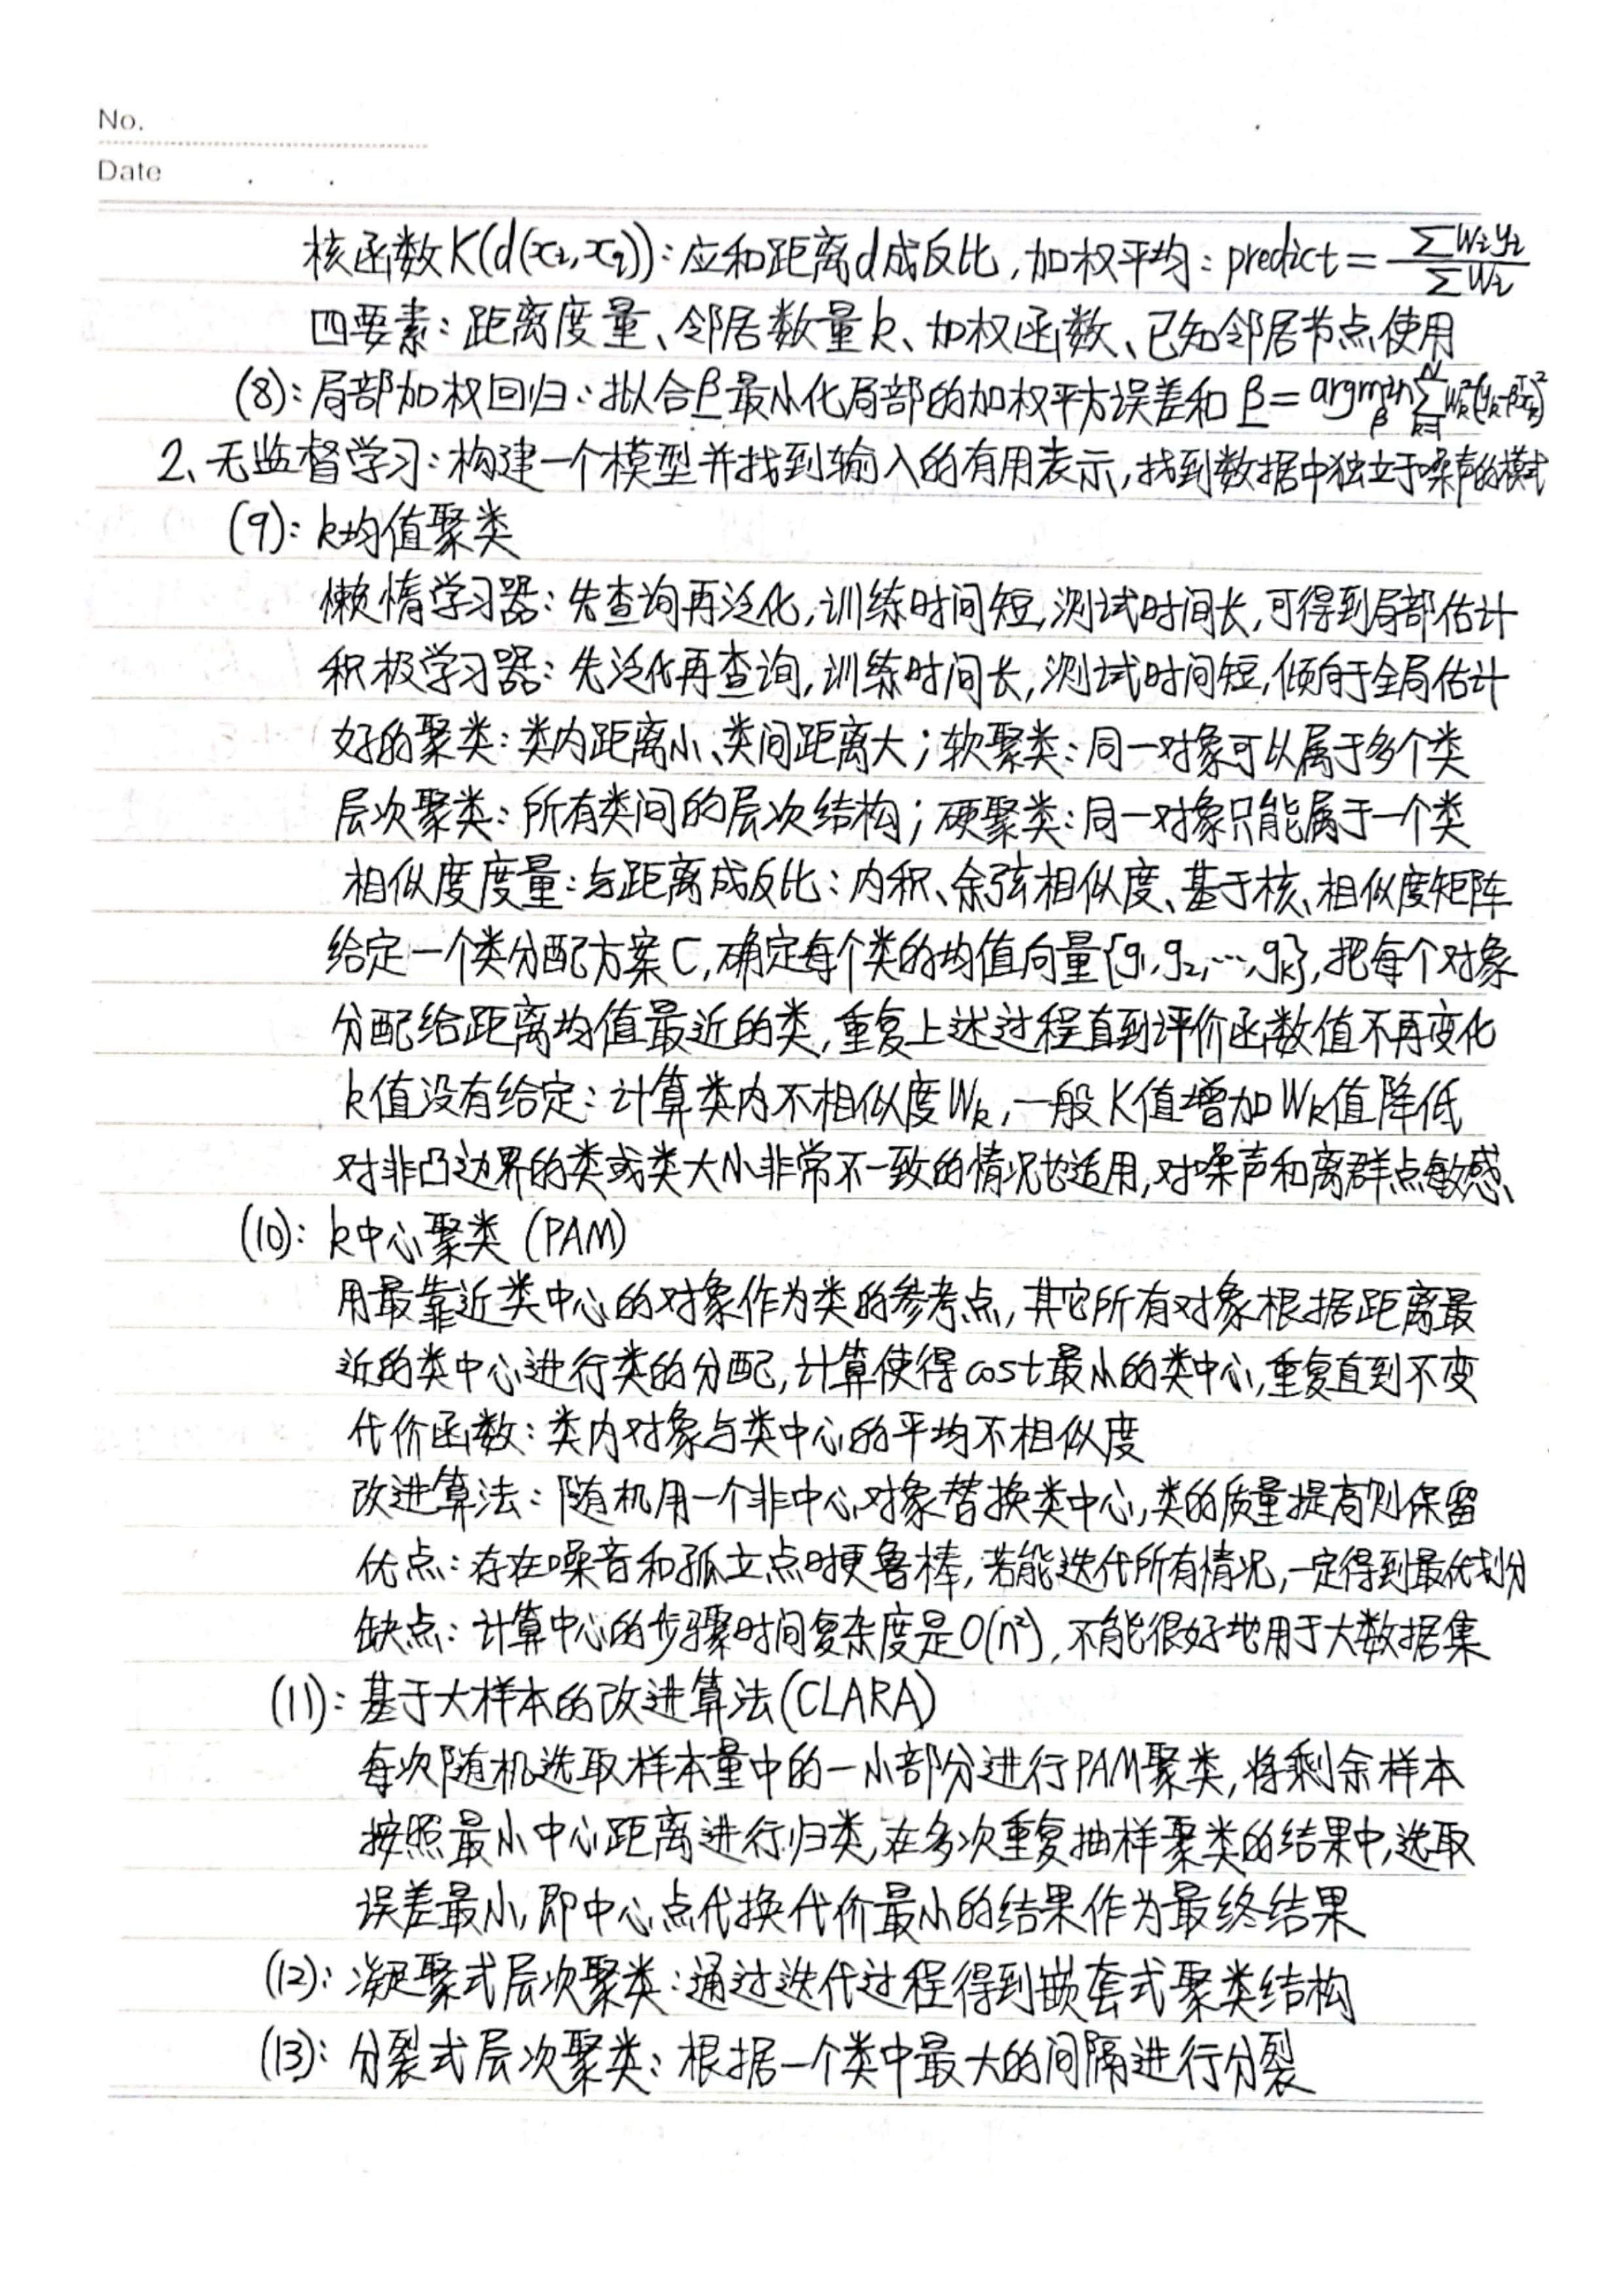 No.
Date
核函数K(d(xᵢ,x_q)):应和距离d成反比,加权平均:predict=∑wᵢyᵢ/∑wᵢ
四要素:距离度量、邻居数量k、加权函数、已知邻居节点使用
(8):局部加权回归:拟合β最小化局部的加权平方误差和 β=argmin_β ∑_{k=1}^N w_k²(y_k-βᵀx_k)²
2、无监督学习:构建一个模型并找到输入的有用表示,找到数据中独立于噪声的模式
(9):k均值聚类
懒惰学习器:先查询再泛化,训练时间短,测试时间长,可得到局部估计
积极学习器:先泛化再查询,训练时间长,测试时间短,倾向于全局估计
好的聚类:类内距离小、类间距离大;软聚类:同一对象可以属于多个类
层次聚类:所有类间的层次结构;硬聚类:同一对象只能属于一个类
相似度度量:与距离成反比:内积、余弦相似度、基于核、相似度矩阵
给定一个类分配方案C,确定每个类的均值向量{g₁,g₂,…,g_k},把每个对象
分配给距离均值最近的类,重复上述过程直到评价函数值不再变化
k值没有给定:计算类内不相似度W_k,一般K值增加W_k值降低
对非凸边界的类或类大小非常不一致的情况也适用,对噪声和离群点敏感、
(10):k中心聚类(PAM)
用最靠近类中心的对象作为类的参考点,其它所有对象根据距离最
近的类中心进行类的分配,计算使得cost最小的类中心,重复直到不变
代价函数:类内对象与类中心的平均不相似度
改进算法:随机用一个非中心对象替换类中心,类的质量提高则保留
优点:存在噪音和孤立点时更鲁棒,若能迭代所有情况,一定得到最优划分
缺点:计算中心的步骤时间复杂度是O(n²),不能很好地用于大数据集
(11):基于大样本的改进算法(CLARA)
每次随机选取样本量中的一小部分进行PAM聚类,将剩余样本
按照最小中心距离进行归类,在多次重复抽样聚类的结果中,选取
误差最小,即中心点代换代价最小的结果作为最终结果
(12):凝聚式层次聚类:通过迭代过程得到嵌套式聚类结构
(13):分裂式层次聚类:根据一个类中最大的间隔进行分裂